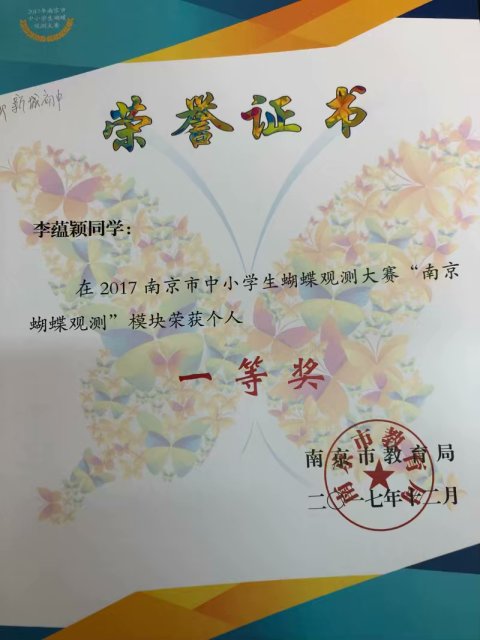 2017年南京市
中小学生蝴蝶
观测大赛
新城初中
荣誉证书
李蕴颖同学：
在2017南京市中小学生蝴蝶观测大赛“南京
蝴蝶观测”模块荣获个人
一等奖
南京市教育局
二〇一七年十二月
南京市教育局